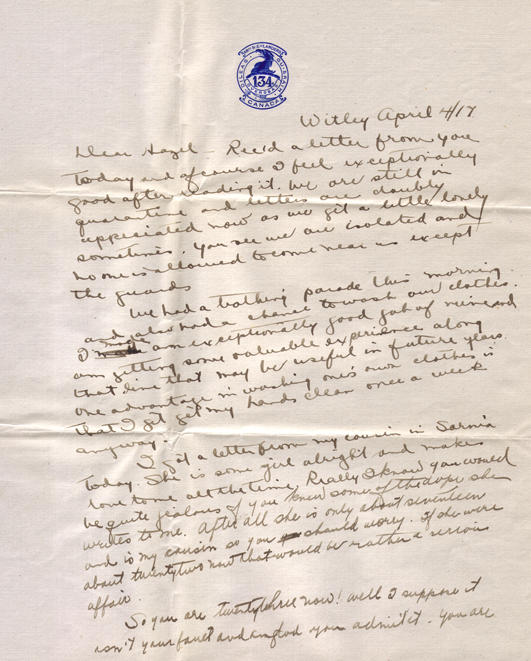 48TH HIGHLANDERS
134
CANADA
Witley April 4/17
Dear Hazel - Rec'd a letter from you
today and of course I feel exceptionally
good after reading it. We are still in
quarantine and letters are doubly
appreciated now as we get a little lonely
sometimes. You see we are isolated and
no one is allowed to come near us except
the guards
We had a bathing parade this morning
and also had a chance to wash our clothes.
I made an exceptionally good job of mine and
am getting some valuable experience along
that line that may be useful in future years.
One advantage in washing one's own clothes is
that I get my hands clean once a week
anyway.
I got a letter from my cousin in Sarnia
today. She is some girl alright and makes
love to me all the time. Really I know you would
be quite jealous if you knew some of the dope she
writes to me. After all she is only about seventeen
and is my cousin so you should worry. If she were
about twenty two now that would be rather a serious
affair.
So you are twenty three now! Well I suppose it
isn't your fault and am glad you admit it. You are